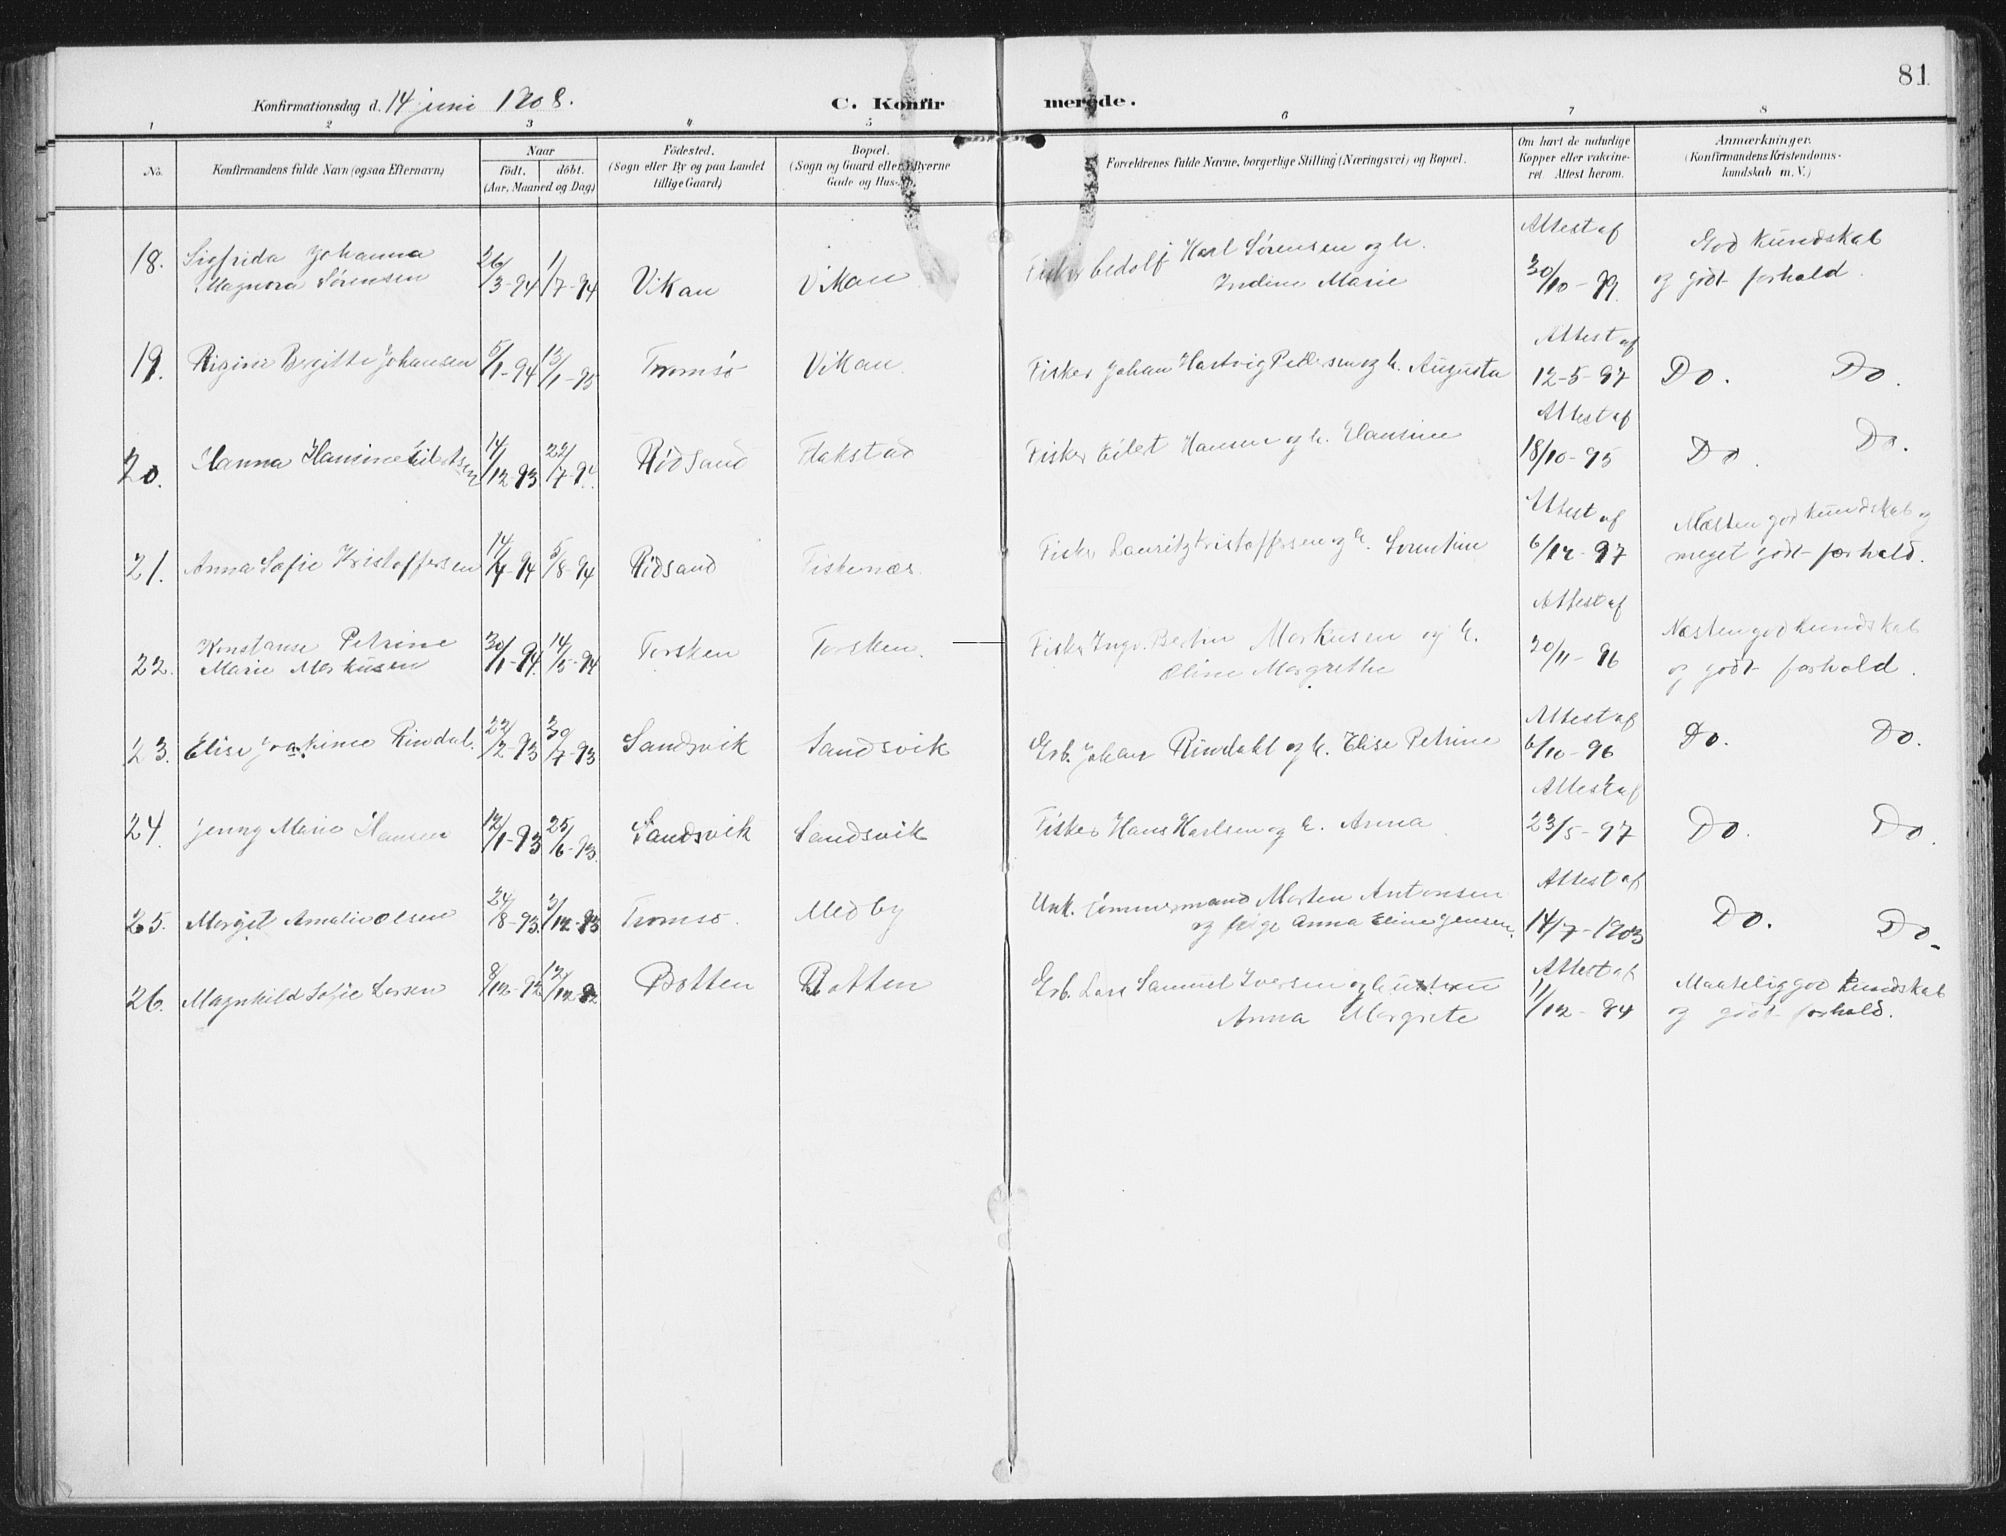 81
Konfirmationsdag d. 14 juni 1908.
C. Konfirmerede.
1 2 3 4 5 6 7 8
No.
Konfirmandens fulde Navn (ogsaa Efternavn)
Naar
födt. döbt.
(Aar, Maaned og Dag)
Födested.
(Sogn eller By og paa Landet
tillige Gaard)
Bopæl.
(Sogn og Gaard eller i Byerne
Gade og Hus-No.
Forældrenes fulde Navne, borgerlige Stilling (Næringsvei) og Bopæl.
Om havt de naturlige
Kopper eller vakcine-
ret Attest herom.
Anmærkninger.
(Konfirmandens Kristendoms-
kundskab m. V.)
18. Sigfrida Johanna
Magnora Sørensen 26/3-94 1/7-94 Vikan Vikan Fisker Edolf Karl Sørensen og h.
Indine Marie Attest af
30/10-99. God kundskab
og godt forhold.
19. Rigine Bergitte Johansen 5/1-94 13/1-95 Tromsø Vikan. Fisker Johan Hartvig Pedersen og h. Augusta Attest af
12-5-97 Do. Do.
20. Hanna Hansine Eilertsen 14/12-93 22/7-94. Rødsand Flakstad Fisker Eilert Hansen og h. Hansine Attest af
18/10-95 Do. Do.
21. Anna Sofie Kristoffersen 14/4-94 5/8-94 Rødsand Fiskenæs. Fisker Lauritz Kristoffersen og h. Sorentine Attest af
6/12-97 Næsten god kundskab og
meget godt forhold.
22. Konstanse Petrine
Marie Markusen 30/1-94. 14/5-94 Torsken Torsken. Fisker Ingv. Bertin Markusen og h.
Eline Margrethe Attest af
20/11-96 Næsten god kundskab
og godt forhold.
23. Elise Joakime Rindal. 22/2-93 30/7-93 Sandsvik Sandsvik Erb. Johan Rindahl og h. Elise Petrine Attest af
6/10-96 Do. Do.
24. Jenny Marie Hansen 12/1-93 25/6-93. Sandsvik Sandsvik Fisker Hans Karlsen og h. Anna Attest af
23/5-97 Do. Do.
25. Margit Amalie Olsen 24/8-93. 3/12-93 Tromsø. Medby Unk. Tømmermand Morten Antonsen
og pige Anna Eline Jensen. Attest af
14/7-1903 Do. Do.
26. Magnhild Sofie Larsen 8/12-92 12/12-92 Botten Botten Erb. Lars Samuel Iversen og hustru
Anna Margrete Attest af
11/12-94 Maatelig god kundskab
og godt forhold.